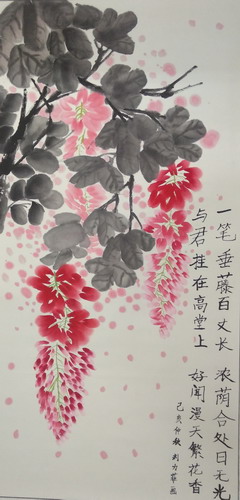 一笔垂藤百丈长 浓荫合处日无光
与君挂在高堂上 好闻漫天繁花香
己亥仲秋